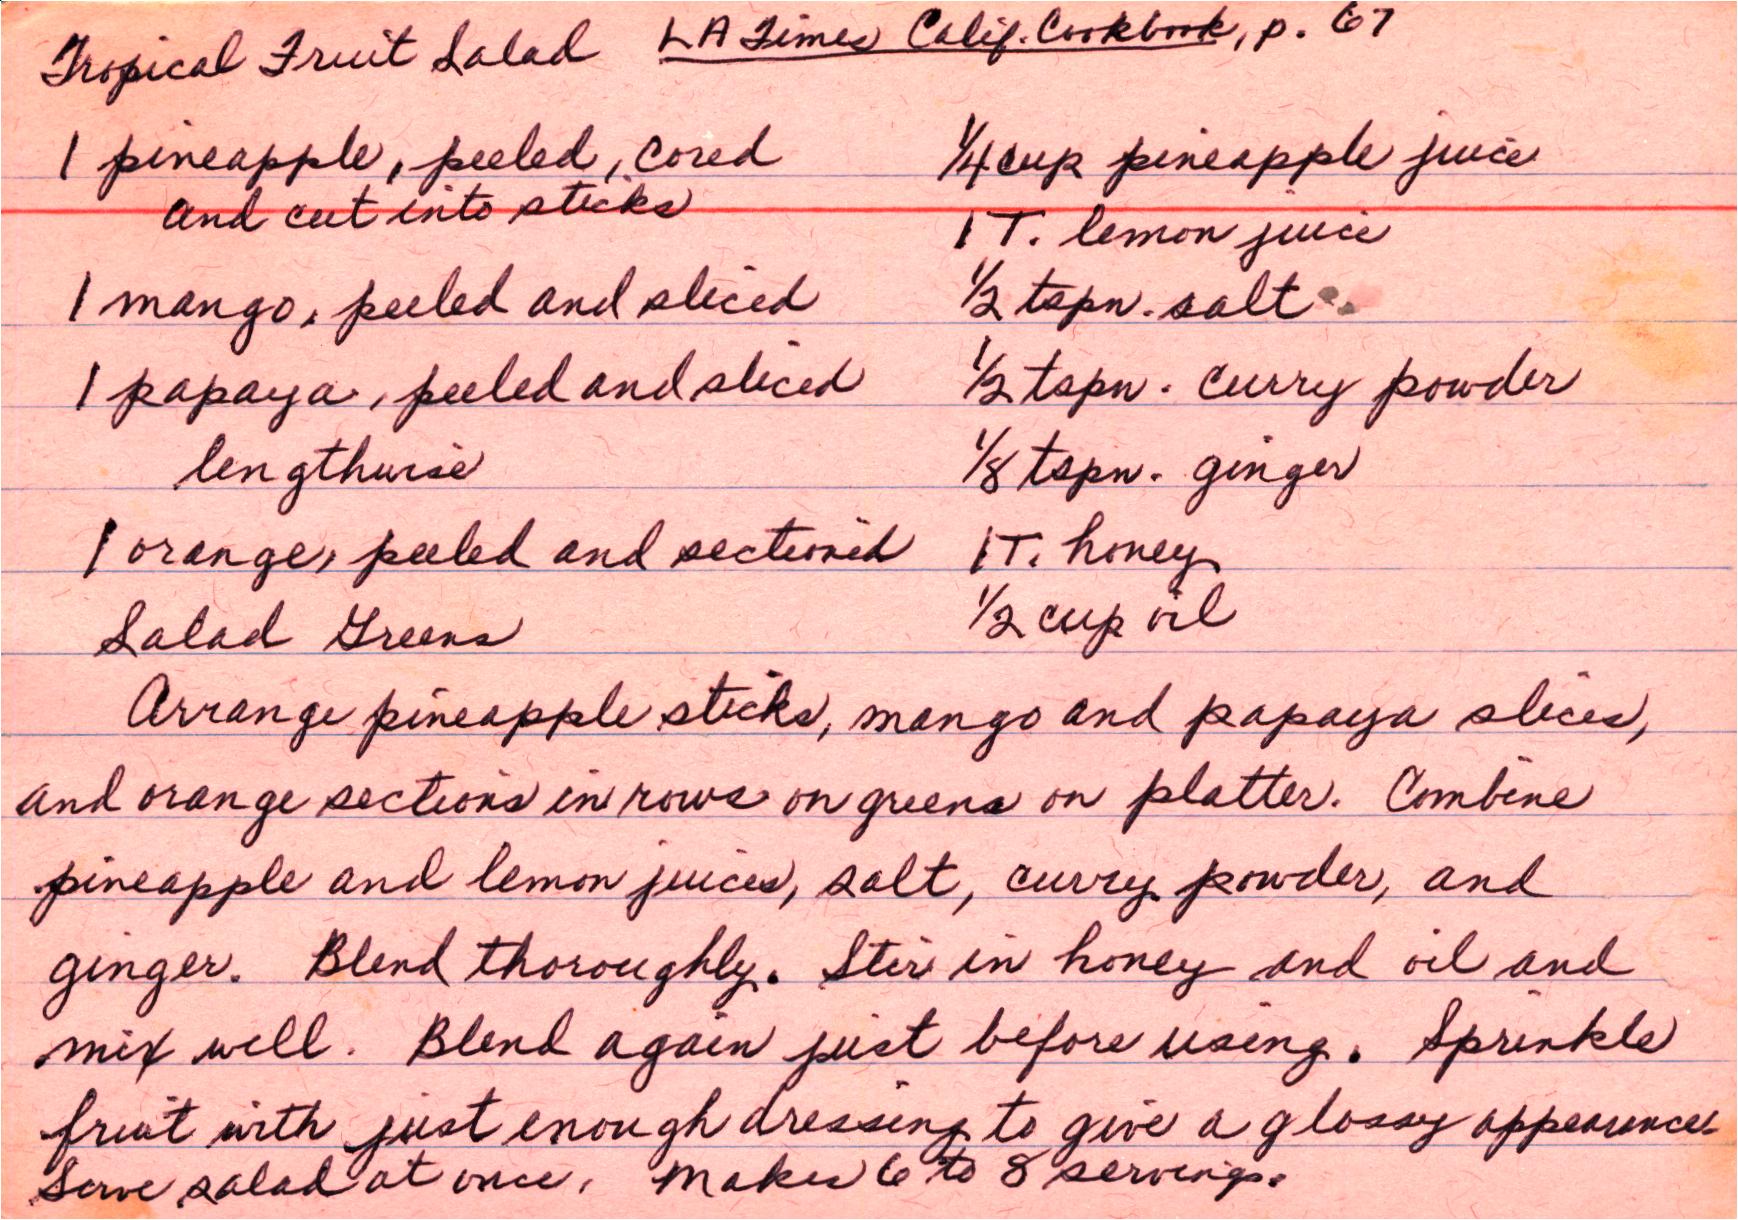 Tropical Fruit Salad LA Times Calif. Cookbook, p. 67
1 pineapple, peeled, cored
and cut into sticks
1 mango, peeled and sliced
1 papaya, peeled and sliced
lengthwise
1 orange, peeled and sectioned
Salad Greens
1/4 cup pineapple juice
1 T. lemon juice
1/2 tspn. salt
1/2 tspn. curry powder
1/8 tspn. ginger
1 T. honey
1/2 cup oil
Arrange pineapple sticks, mango and papaya slices,
and orange sections in rows on greens on platter. Combine
pineapple and lemon juices, salt, curry powder, and
ginger. Blend thoroughly. Stir in honey and oil and
mix well. Blend again just before using. Sprinkle
fruit with just enough dressing to give a glossy appearance.
Serve salad at once. Makes 6 to 8 servings.